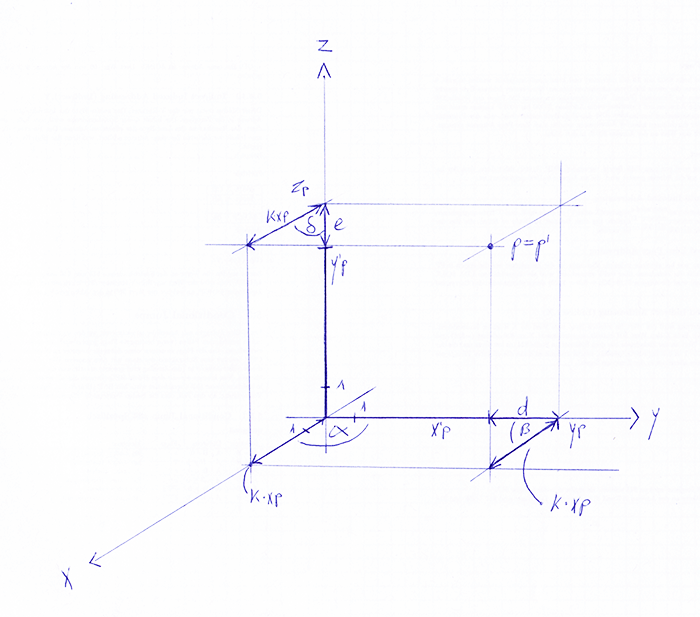 Z
zp
kxp
δ
e
p=p'
y'p
1
1
1
α
x'p
d
β
yp
Y
K·xp
K·xp
X